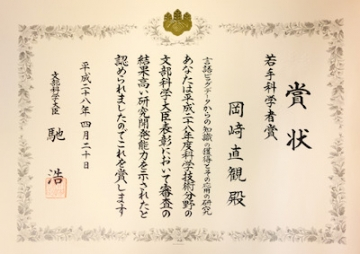 賞状
若手科学者賞
岡﨑直観殿
言語ビッグデータからの知識の獲得とその応用の研究
あなたは平成二八年度科学技術分野の
文部科学大臣表彰において審査の
結果高い研究開発能力を示されたと
認められましたのでこれを賞します
平成二十八年四月二十日
文部科学大臣 馳浩